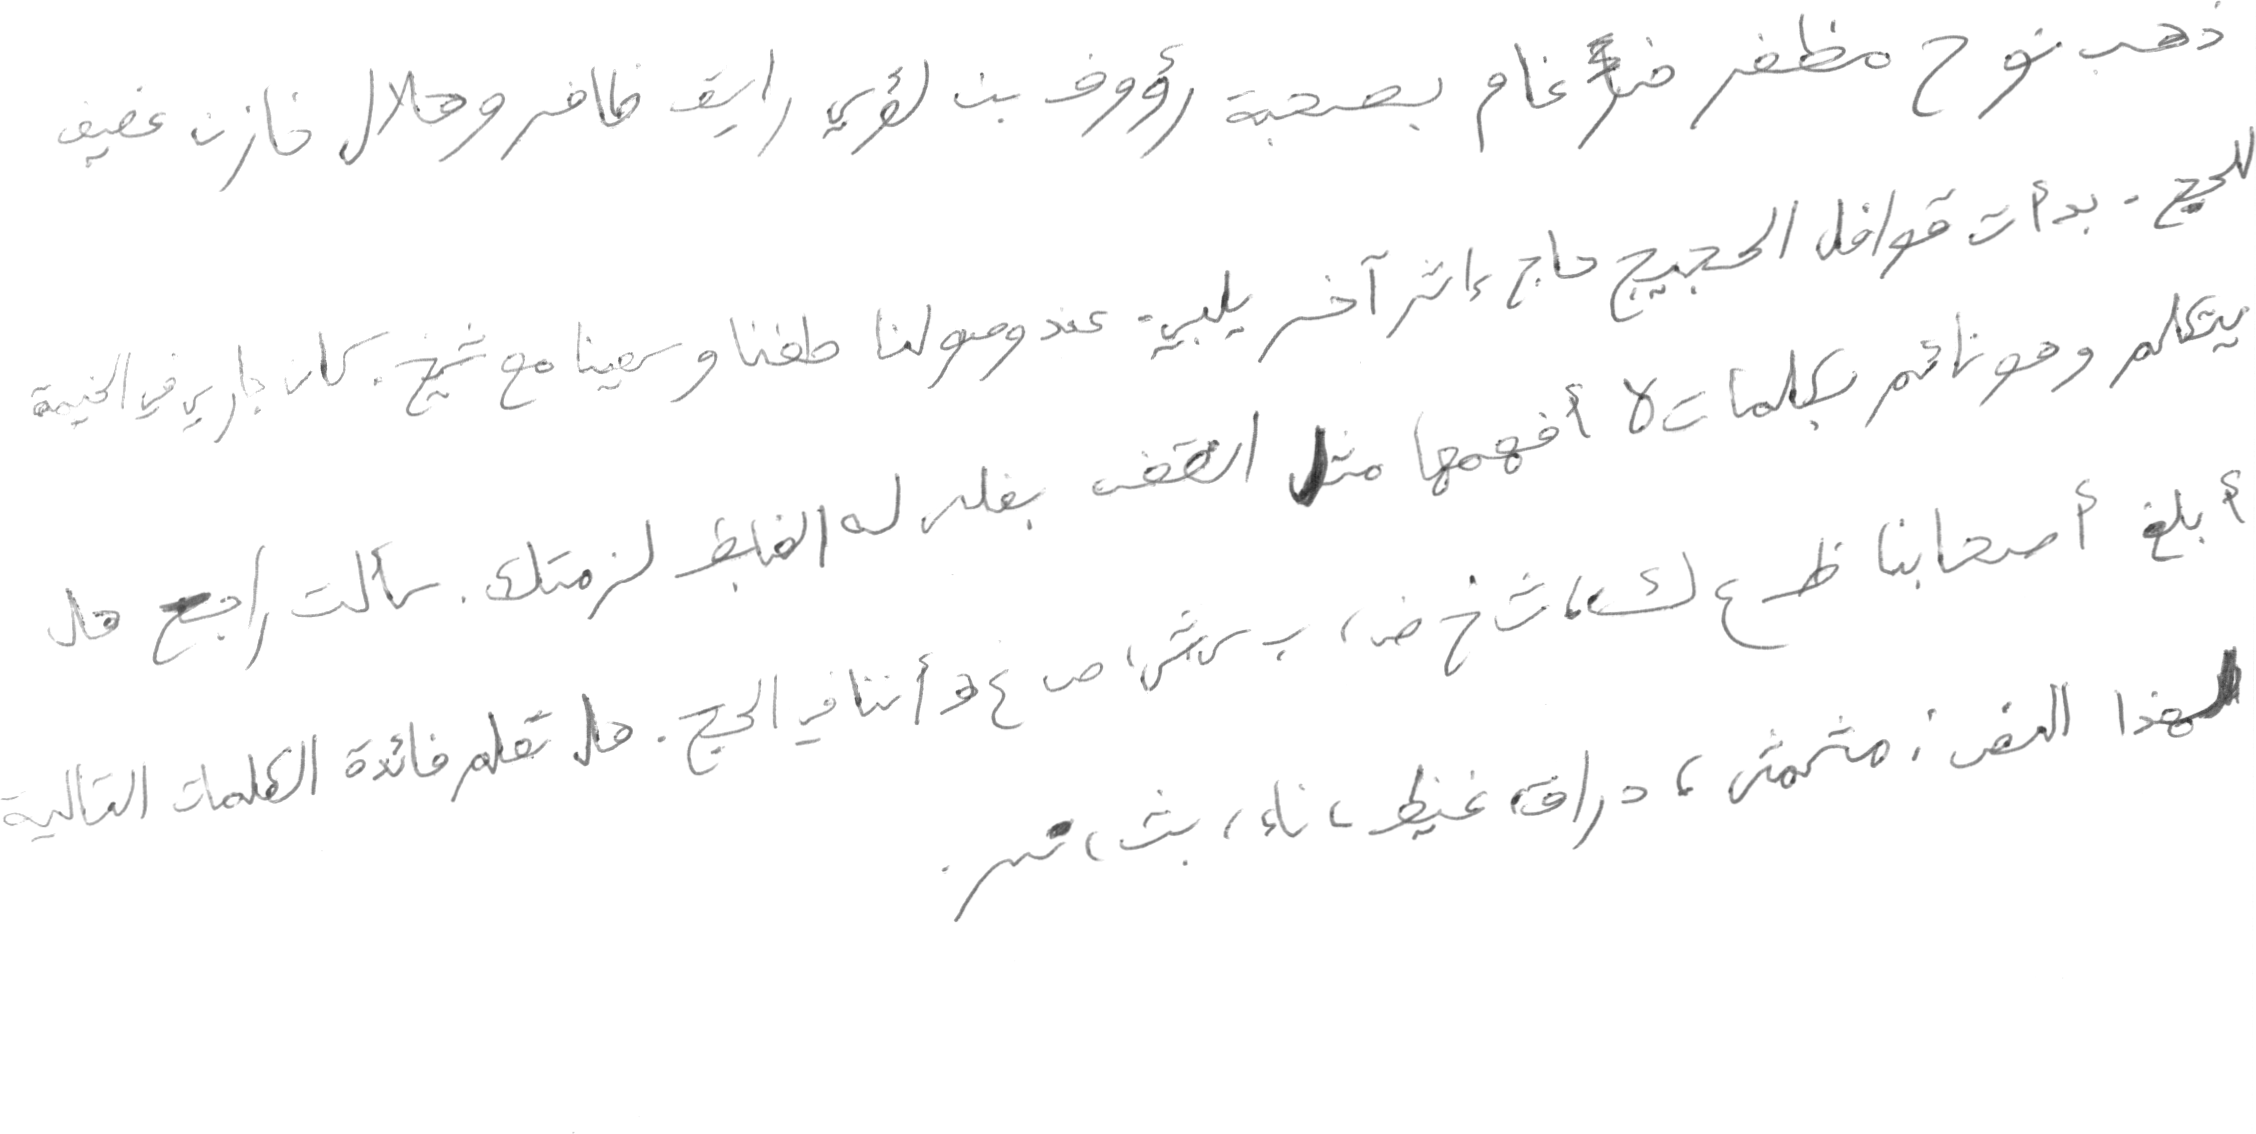 ذهب نوح مظفر ضرغام بصحبة رؤوف بن لؤي رايق ظافر وهلال خازن عفيف
للحج . بدأت قوافل الحجيج حاج إثر آخر يلبي . عند وصولنا طفنا وسعينا مع شيخ . كان جاري في الخيمة
يتكلم وهو نائم بكلمات لا أفهمها مثل انقض بغلس له الغابظ لزمتك . سألت راجح هل
أبلغ أصحابنا ظ ع ك ، ث خ ض ، ب س ش ، ص غ ه أننا في الحج . هل تعلم فائدة الكلمات التالية
لهذا النص : مشمش ، دراق ، غيظ ، ناء ، بث ، تمر .